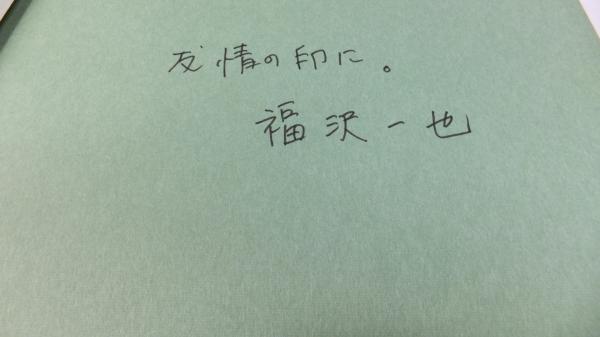 友情の印に。
福沢一也